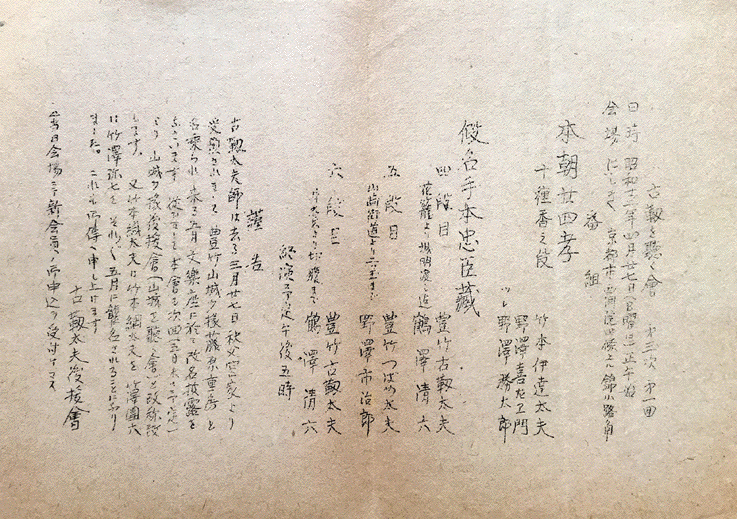 古靱を聴く會 第三次 第一回
日時 昭和廿二年四月廿七日(日曜日)正午始
会場 京都市西洞院四條上ル錦小路角
番組
本朝廿四孝
十種香之段
竹本伊達太夫
野澤喜左ヱ門
ツレ 野澤勝太郎
假名手本忠臣藏
四段目
花籠より城明渡し迄
豊竹古靱太夫
鶴澤清六
五段目
山崎街道より二ツ玉まで
豊竹つばめ太夫
野澤市治郎
六段目
勘平切腹まで
豊竹古靱太夫
鶴澤清六
終演予定午後五時
謹告
古靱太夫師は去る三月廿七日秩父宮家より
受領されまして豊竹山城少掾藤原重房と
名乗られ来る五月文樂座に於て改名披露を
ございます 従而本會も次回
より山城少掾後援會「山城を聴く會」と改称致
します。又竹本織太夫は竹本綱太夫を 竹澤團六
は竹澤弥七をそれぞれ五月に襲名されることになり
ました。これも御傳へ申し上げます。
古靱太夫後援會
当日会場ニテ新會員ノ御申込ヲ受付ケマス